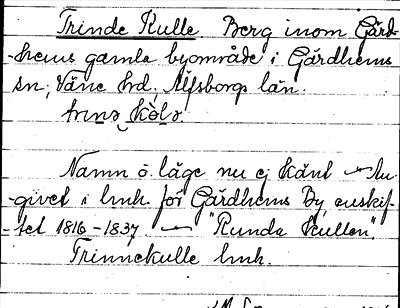 Trinde Kulle. Berg inom Gärd-
-hems gamla byområde i Gärdhems
sn, Väne hrd, Älfsborgs län.
Namn o. läge nu ej känt – An-
givet i lmh. för Gärdhems By, enskif-
-tet 1816–1837 – "Runda Kullen".
Trinnekulle lmh.